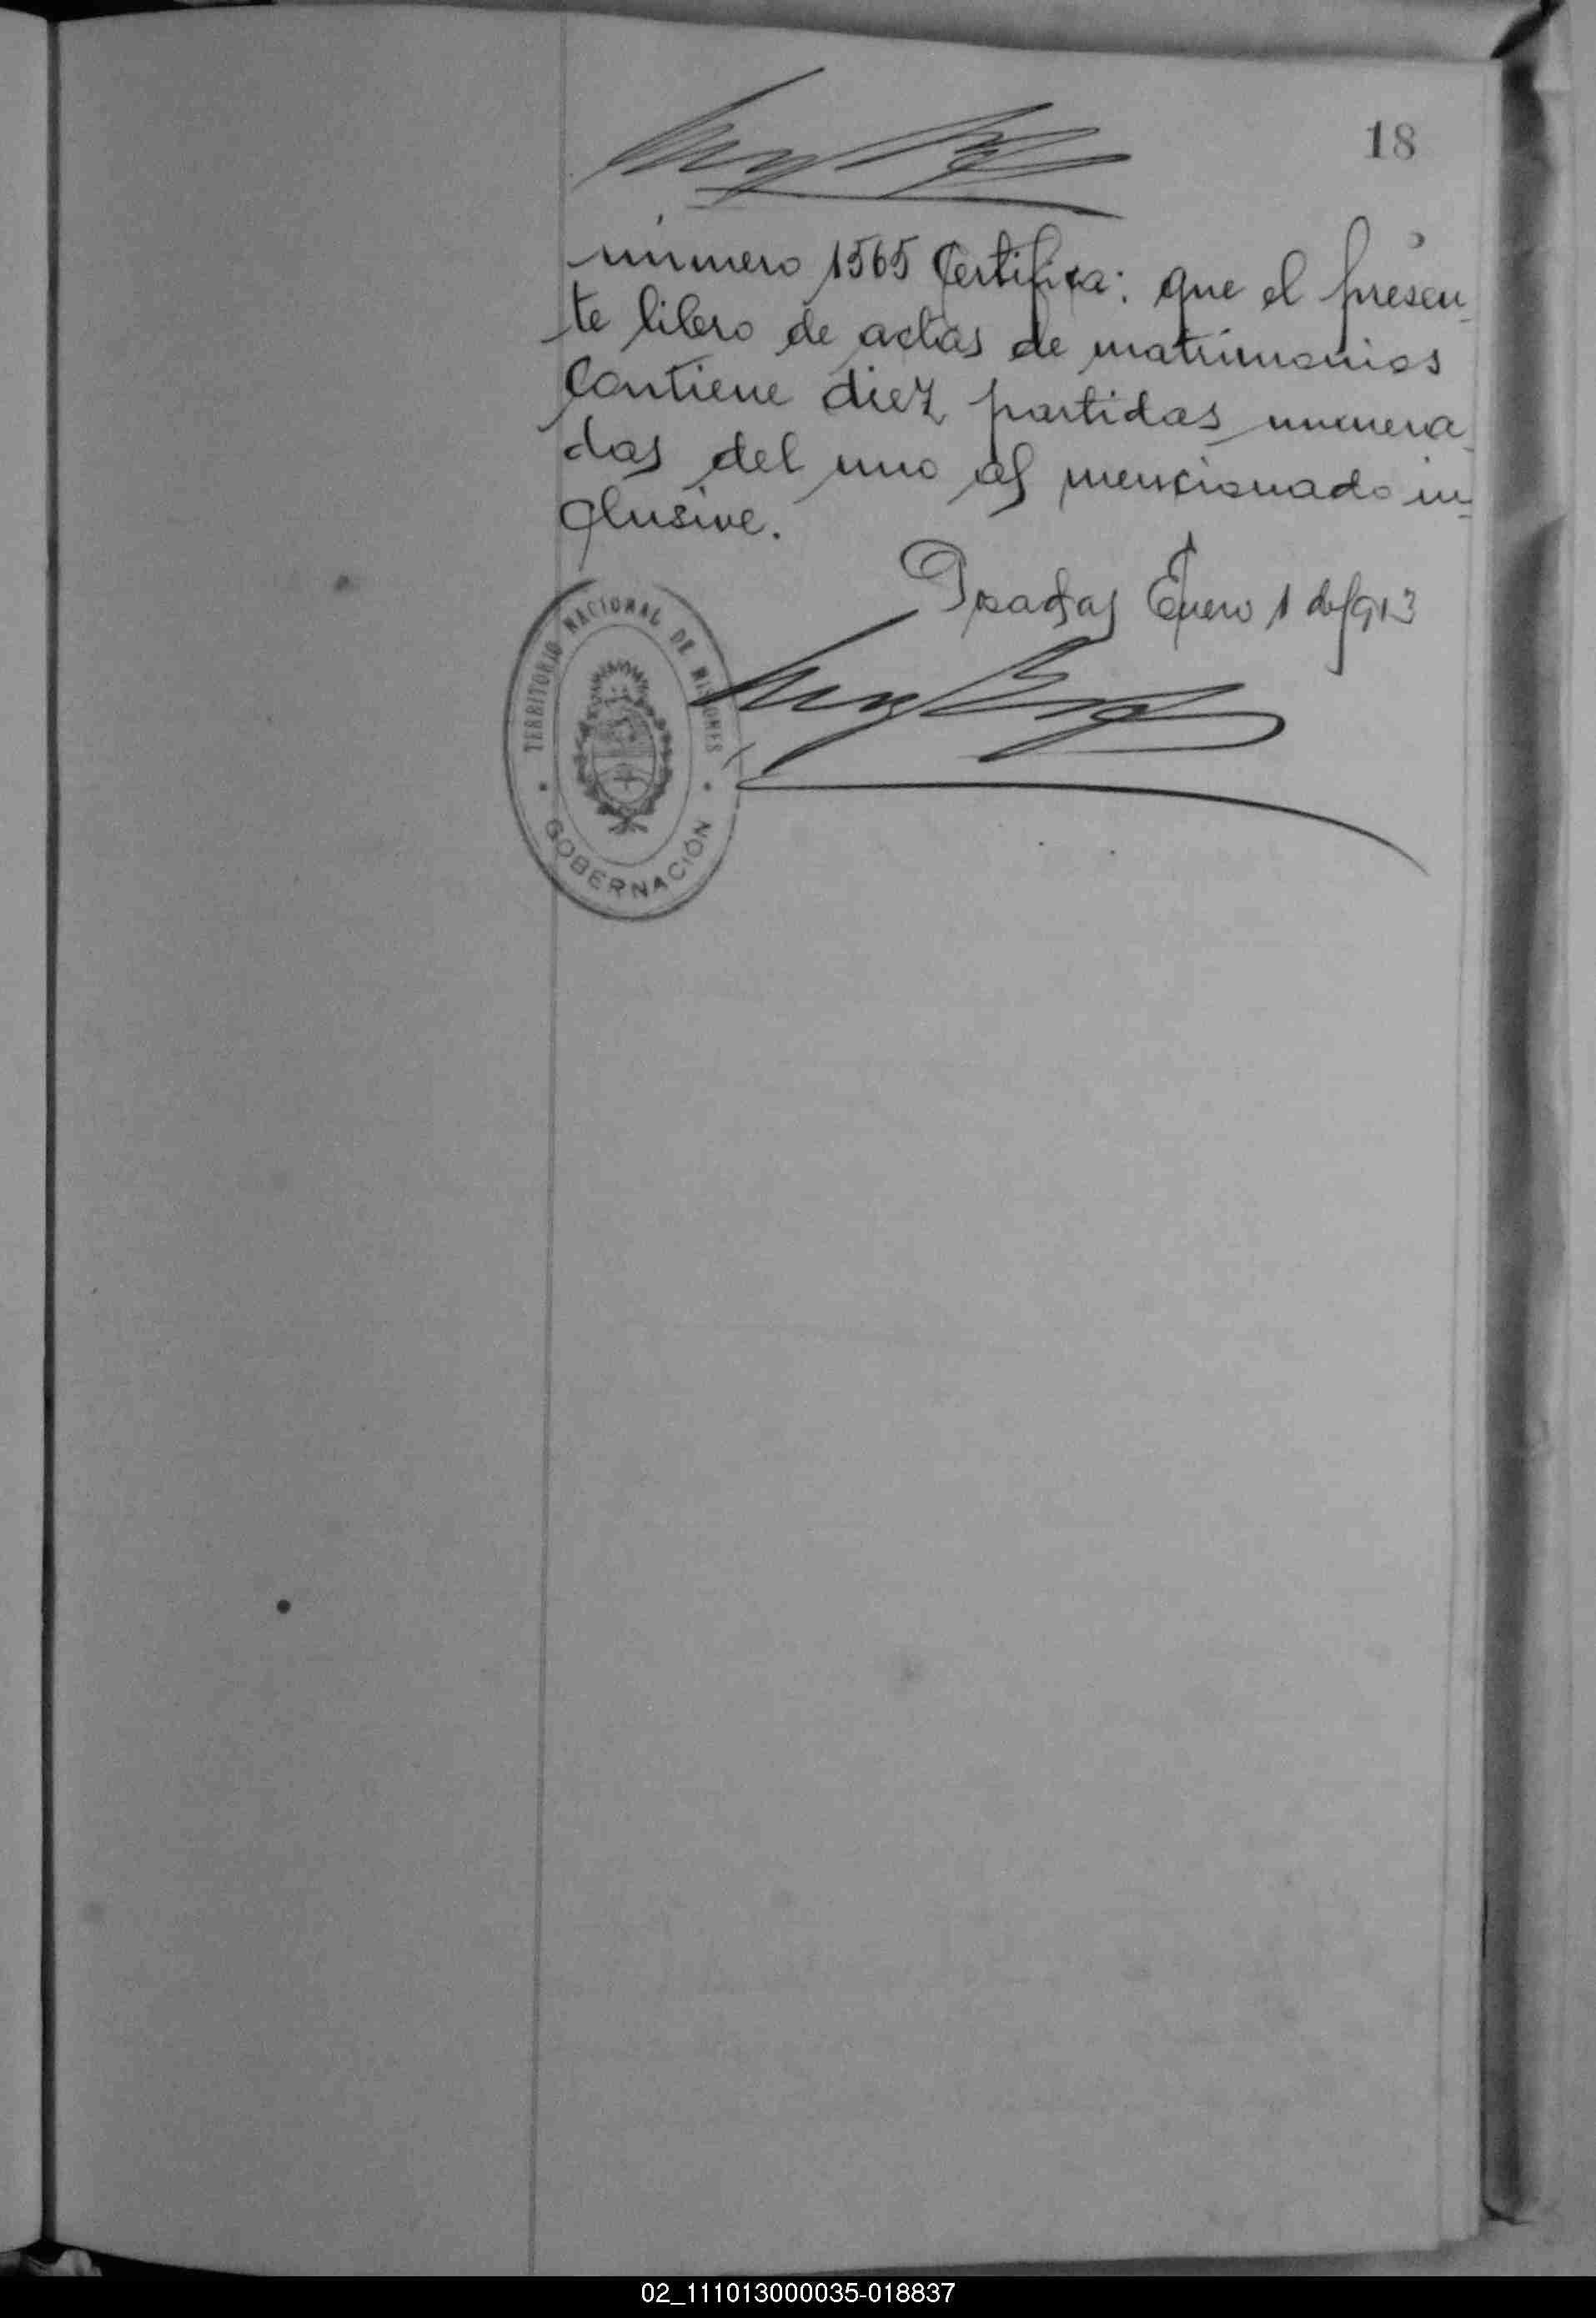 18
número 1565 Certifica: que el presen-
te libro de actas de matrimonios
Contiene diez partidas numera-
das del uno al mencionado in-
clusive.
Posadas Enero 1 de 1913
TERRITORIO NACIONAL DE MISIONES
GOBERNACIÓN
02_111013000035-018837